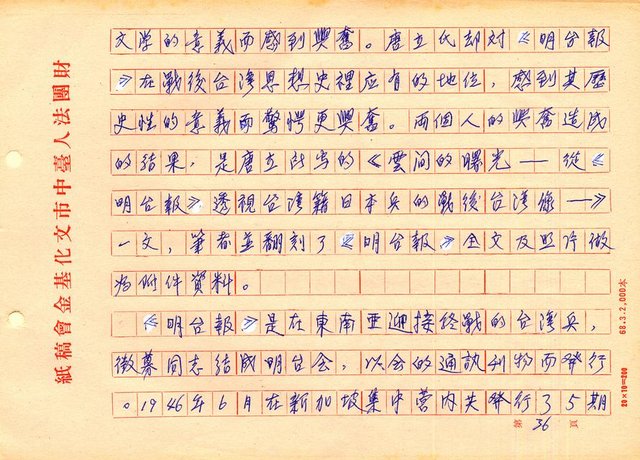 文学的意義而感到興奮。唐立氏却对《明台報
》在戰後台湾思想史裡应有的地位，感到其歷
史性的意義而驚愕更興奮。両個人的興奮造成
的結果，是唐立所写的《雲间的曙光——從《
明台報》透視台湾籍日本兵的戰後台湾像——》
一文，筆者並翻刻了《明台報》全文及照片做
為附件資料。
《明台報》是在東南亜迎接终戰的台湾兵，
徵募同志结成明台会，以会的通訊刊物而発行
。1946年6月在新加坡集中营内共発行了5期
第36頁
財團法人臺中市文化基金會稿紙
68.3.2,000本
20×10=200